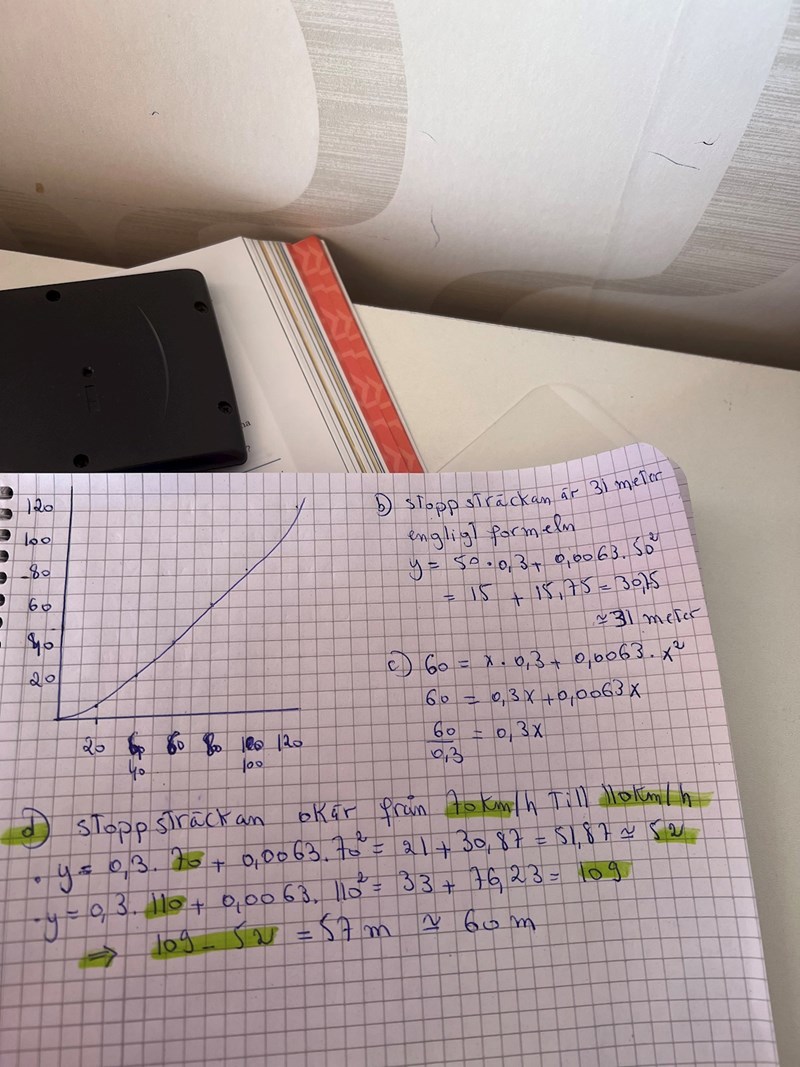 120
100
80
60
40
20
20 60 80 100 120
40 100
b) stoppsträckan är 31 meter
engligt formeln
y = 50 · 0,3 + 0,0063 · 50²
= 15 + 15,75 = 30,75
≈ 31 meter
c) 60 = x · 0,3 + 0,0063 · x²
60 = 0,3x + 0,0063x
60/0,3 = 0,3x
d) stoppsträckan ökar från 70km/h Till 110km/h
· y = 0,3 · 70 + 0,0063 · 70² = 21 + 30,87 = 51,87 ≈ 52
· y = 0,3 · 110 + 0,0063 · 110² = 33 + 76,23 = 109
⇒ 109 - 52 = 57 m ≈ 60 m